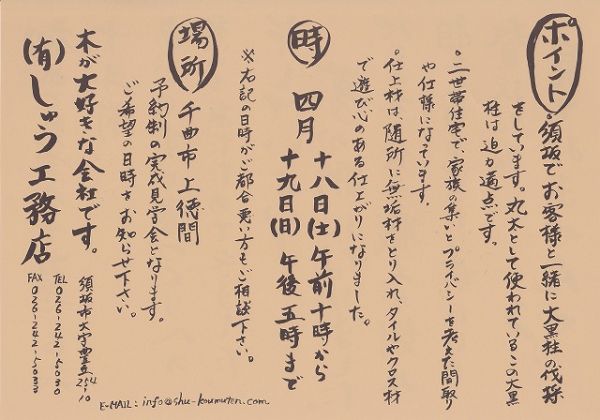 ポイント
・須坂でお客様と一緒に大黒柱の伐採
をしています。丸太として使われているこの大黒
柱は迫力満点です。
・二世帯住宅で、家族の集いとプライバシーを考えた間取り
や仕様になっています。
・仕上材は随所に無垢材をとり入れ、タイルやクロス材
で遊び心のある仕上がりになりました。
時
四月
十八日(土)午前十時から
十九日(日)午後五時まで
※右記の日時がご都合悪い方もご相談下さい。
場所
千曲市上徳間
予約制の完成見学会となります。
ご希望の日時をお知らせ下さい。
木が大好きな会社です。
(有)しゅう工務店
須坂市大字豊丘254-10
TEL 026-242-5030
FAX 026-242-5033
E-MAIL: info@shu-koumuten.com